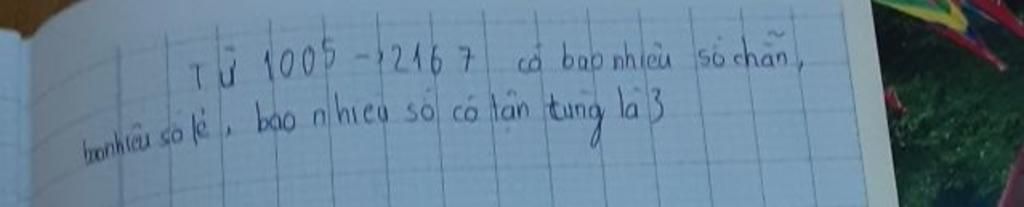 Từ 1005 → 2167 có bao nhiêu số chẵn,
bao nhiêu số lẻ, bao nhiêu số có tận tùng là 3